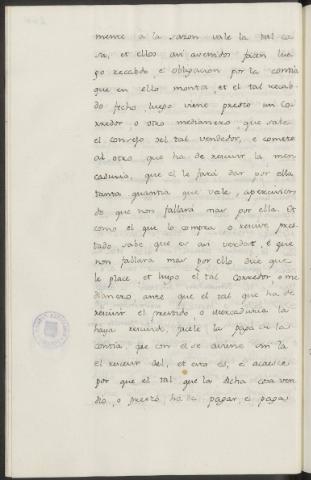 mente a la sazon vale la tal ca
sa, et ellos asi avenidos facen lue
go recabdo e obligacion por la contia
que en ello monta, et el tal recab-
do fecho, luego viene presto un Co-
rredor o otro medianero que sabe
el consejo del tal vendedor, e comete
al otro que ha de recivir la mer
caduria, que el le fará dar por ella
tanta quantia que vale, apercivien
do que non fallará mas por ella. Et
como el que lo compra o recive pres
tado sabe que es asi verdat, e que
non fallara mas por ello dice que
le place, et luego el tal Corredor, o me
dianero antes que el tal que ha de
recivir el prestido o mercaduria la
haya recivido, facele la paga en la
contia, que con el se aviene sin la
el recivir del, et esto es, e acaesce
por que el tal que la dicha cosa ven
dio, o prestó ha de pagar, e paga